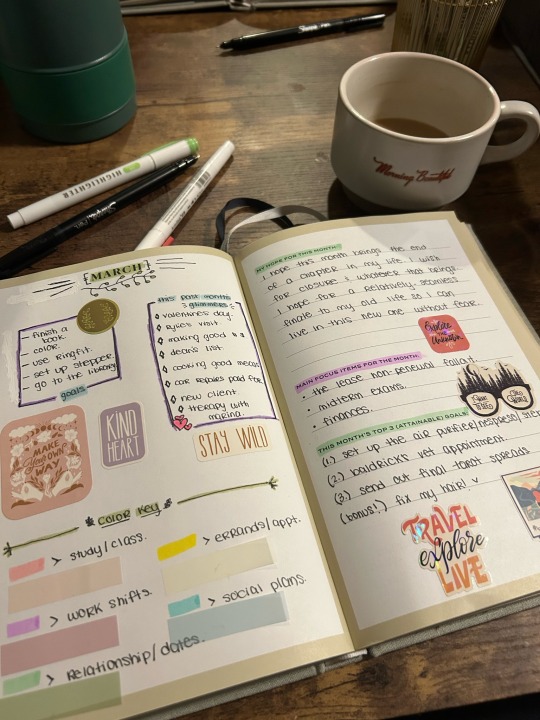 HIGHLIGHTER
Morning Beautiful
MARCH
- finish a
book.
- color.
- use ringfit.
- set up stepper.
- go to the library
goals
this past month's
glimmers:
valentine's day.
rylie's visit.
making good $ $
dean's list.
cooking good meals
car repairs paid for
new client
therapy with
marina.
MAKE
your OWN
WAY
KIND
HEART
STAY WILD
color key
> study/class.
> errands/appt.
> work shifts.
> social plans.
> Relationship/dates.
MY HOPE FOR THIS MONTH:
I hope this month brings the end
of a chapter in my life. I wish
for closure & whatever that brings.
I hope for a relatively-seamless
finale to my old life so I can
live in this new one without fear.
Explore
MAIN FOCUS ITEMS FOR THE MONTH:
• the lease non-renewal fallout.
• midterm exams.
• finances.
THIS MONTH'S TOP 3 (ATTAINABLE) GOALS:
(1.) set up the air purifier/respress/
(2.) baldrick's vet appointment.
(3.) send out final tarot spreads
(bonus!) fix my hair!
TRAVEL
explore
LIVE